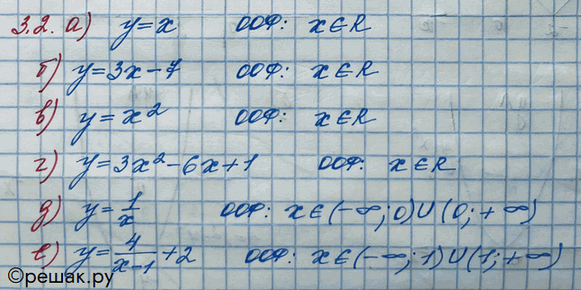 3.2. а) y = x ООФ: x ∈ R
б) y = 3x - 7 ООФ: x ∈ R
в) y = x² ООФ: x ∈ R
г) y = 3x² - 6x + 1 ООФ: x ∈ R
д) y = 1/x ООФ: x ∈ (-∞; 0) ∪ (0; +∞)
е) y = 4/(x-1) + 2 ООФ: x ∈ (-∞; 1) ∪ (1; +∞)
©решак.ру